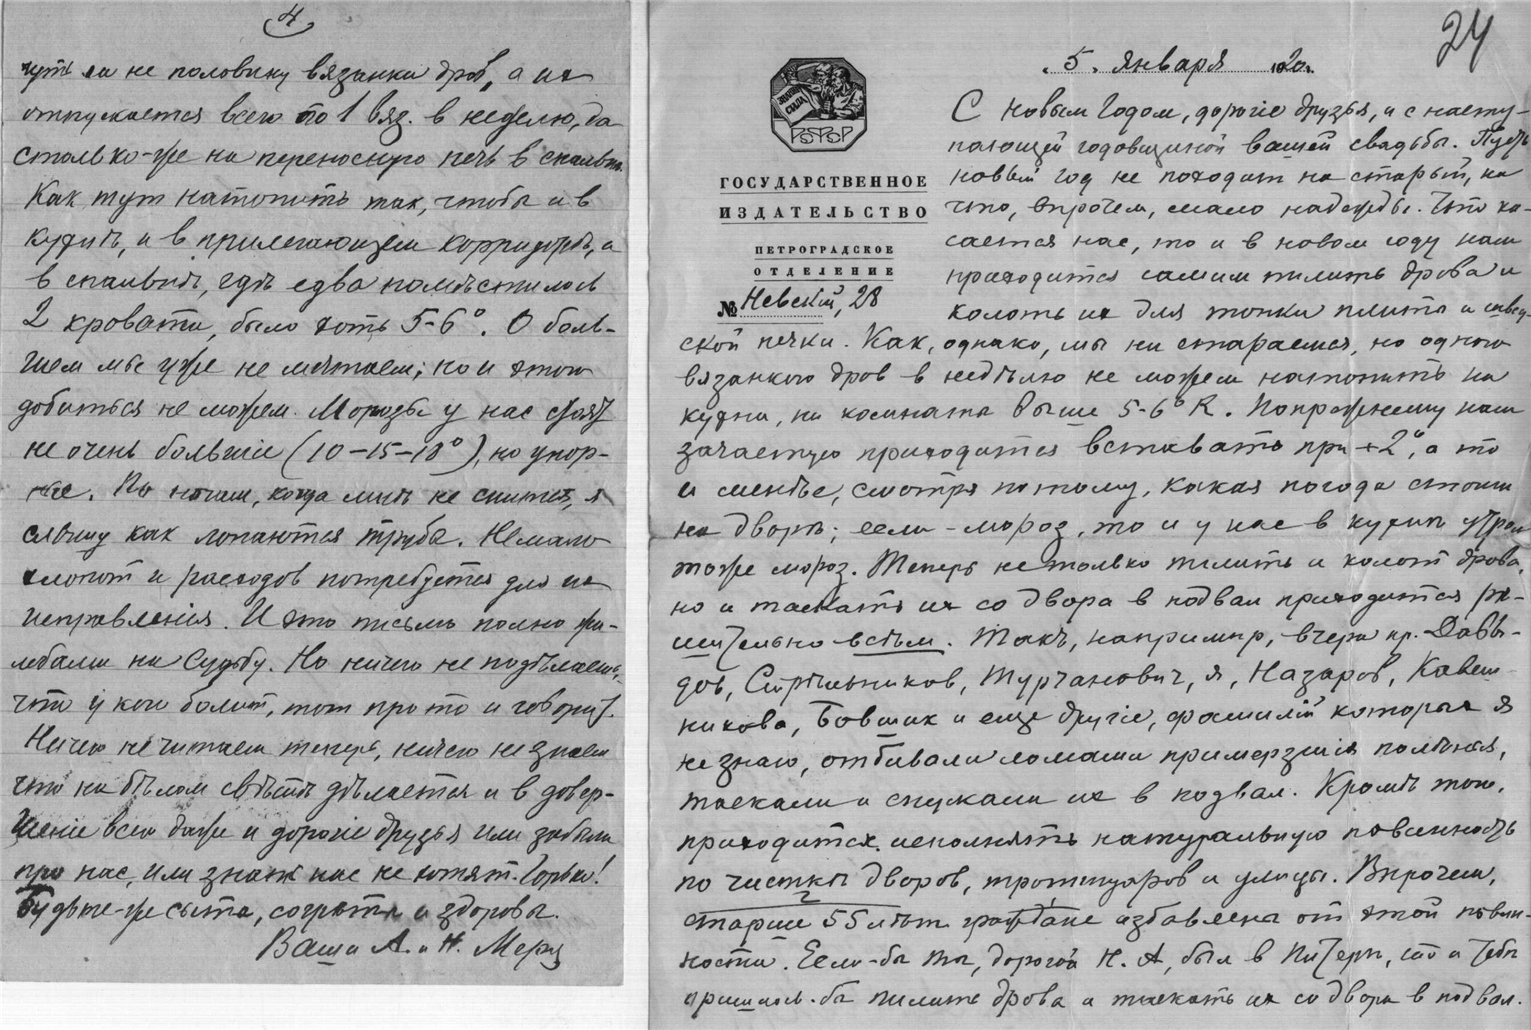 4
чуть ли не половину вязанки дров, а их
отпускается всего по 1 вяз. в неделю, да
столько-же на переносную печь в спальню.
Как тут натопить так, чтобы и в
кухнѣ, и в прилегающем корридорѣ, и
в спальнѣ, гдѣ едва помѣстились
2 кровати, было хоть 5-6°. О боль-
шем мы уже не мечтаем; но и этого
добиться не можем. Морозы у нас стоят
не очень большіе (10-15-18°), но упор-
ные. По ночам, когда мнѣ не спится, я
слышу как лопаются трубы. Немало
хлопот и расходов потребуется для их
исправленія. И это письмо полно жа-
лобами на Судьбу. Но ничего не подѣлаешь,
что у кого болит, тот про то и говорит.
Ничего не читаем теперь, ничего не знаем
что на бѣлом свѣтѣ дѣлается и в довер-
шеніе всего даже и дорогіе друзья или забыли
про нас, или знать нас не хотят. Горько!
Будьте-же сыты, согрѣты и здоровы.
Ваши А. и Н. Мерц
24
5. января 1920 г.
ЗНАНИЕ СИЛА
РСФСР
ГОСУДАРСТВЕННОЕ
ИЗДАТЕЛЬСТВО
ПЕТРОГРАДСКОЕ
ОТДЕЛЕНИЕ
№ Невский, 28
С Новым Годом, дорогіе друзья, и с насту-
пающей годовщиной вашей свадьбы. Пусть
новый год не походит на старый, на
что, впрочем, мало надежды. Что ка-
сается нас, то и в новом году нам
приходится самим пилить дрова и
колоть их для топки плиты и швед-
ской печки. Как, однако, мы ни стараемся, но одного
вязанкою дров в недѣлю не можем натопить ни
кухни, ни комнаты выше 5-6° R. Попрежнему нам
зачастую приходится вставать при +2°, а то
и менѣе, смотря потому, какая погода стоит
на дворѣ; если - мороз, то и у нас в кухнѣ утром
тоже мороз. Теперь не только пилить и колоть дрова,
но и таскать их со двора в подвал приходится рѣ-
шительно всѣм. Такъ, например, вчера пр. Давы-
дов, Стрѣльников, Турчанович, я, Назаров, Кавеш-
никова, Бовшик и еще другіе, фамилій которых я
не знаю, отбивали ломами примерзшія полѣнья,
таскали и спускали их в подвал. Кромѣ того,
приходится исполнять натуральную повинность
по чисткѣ дворов, тротуаров и улицы. Впрочем,
старше 55 лѣт граждане избавлены от этой повин-
ности. Если-бы ты, дорогой Н. А., был в Питерѣ, то и тебѣ
пришлось-бы пилить дрова и таскать их со двора в подвал.